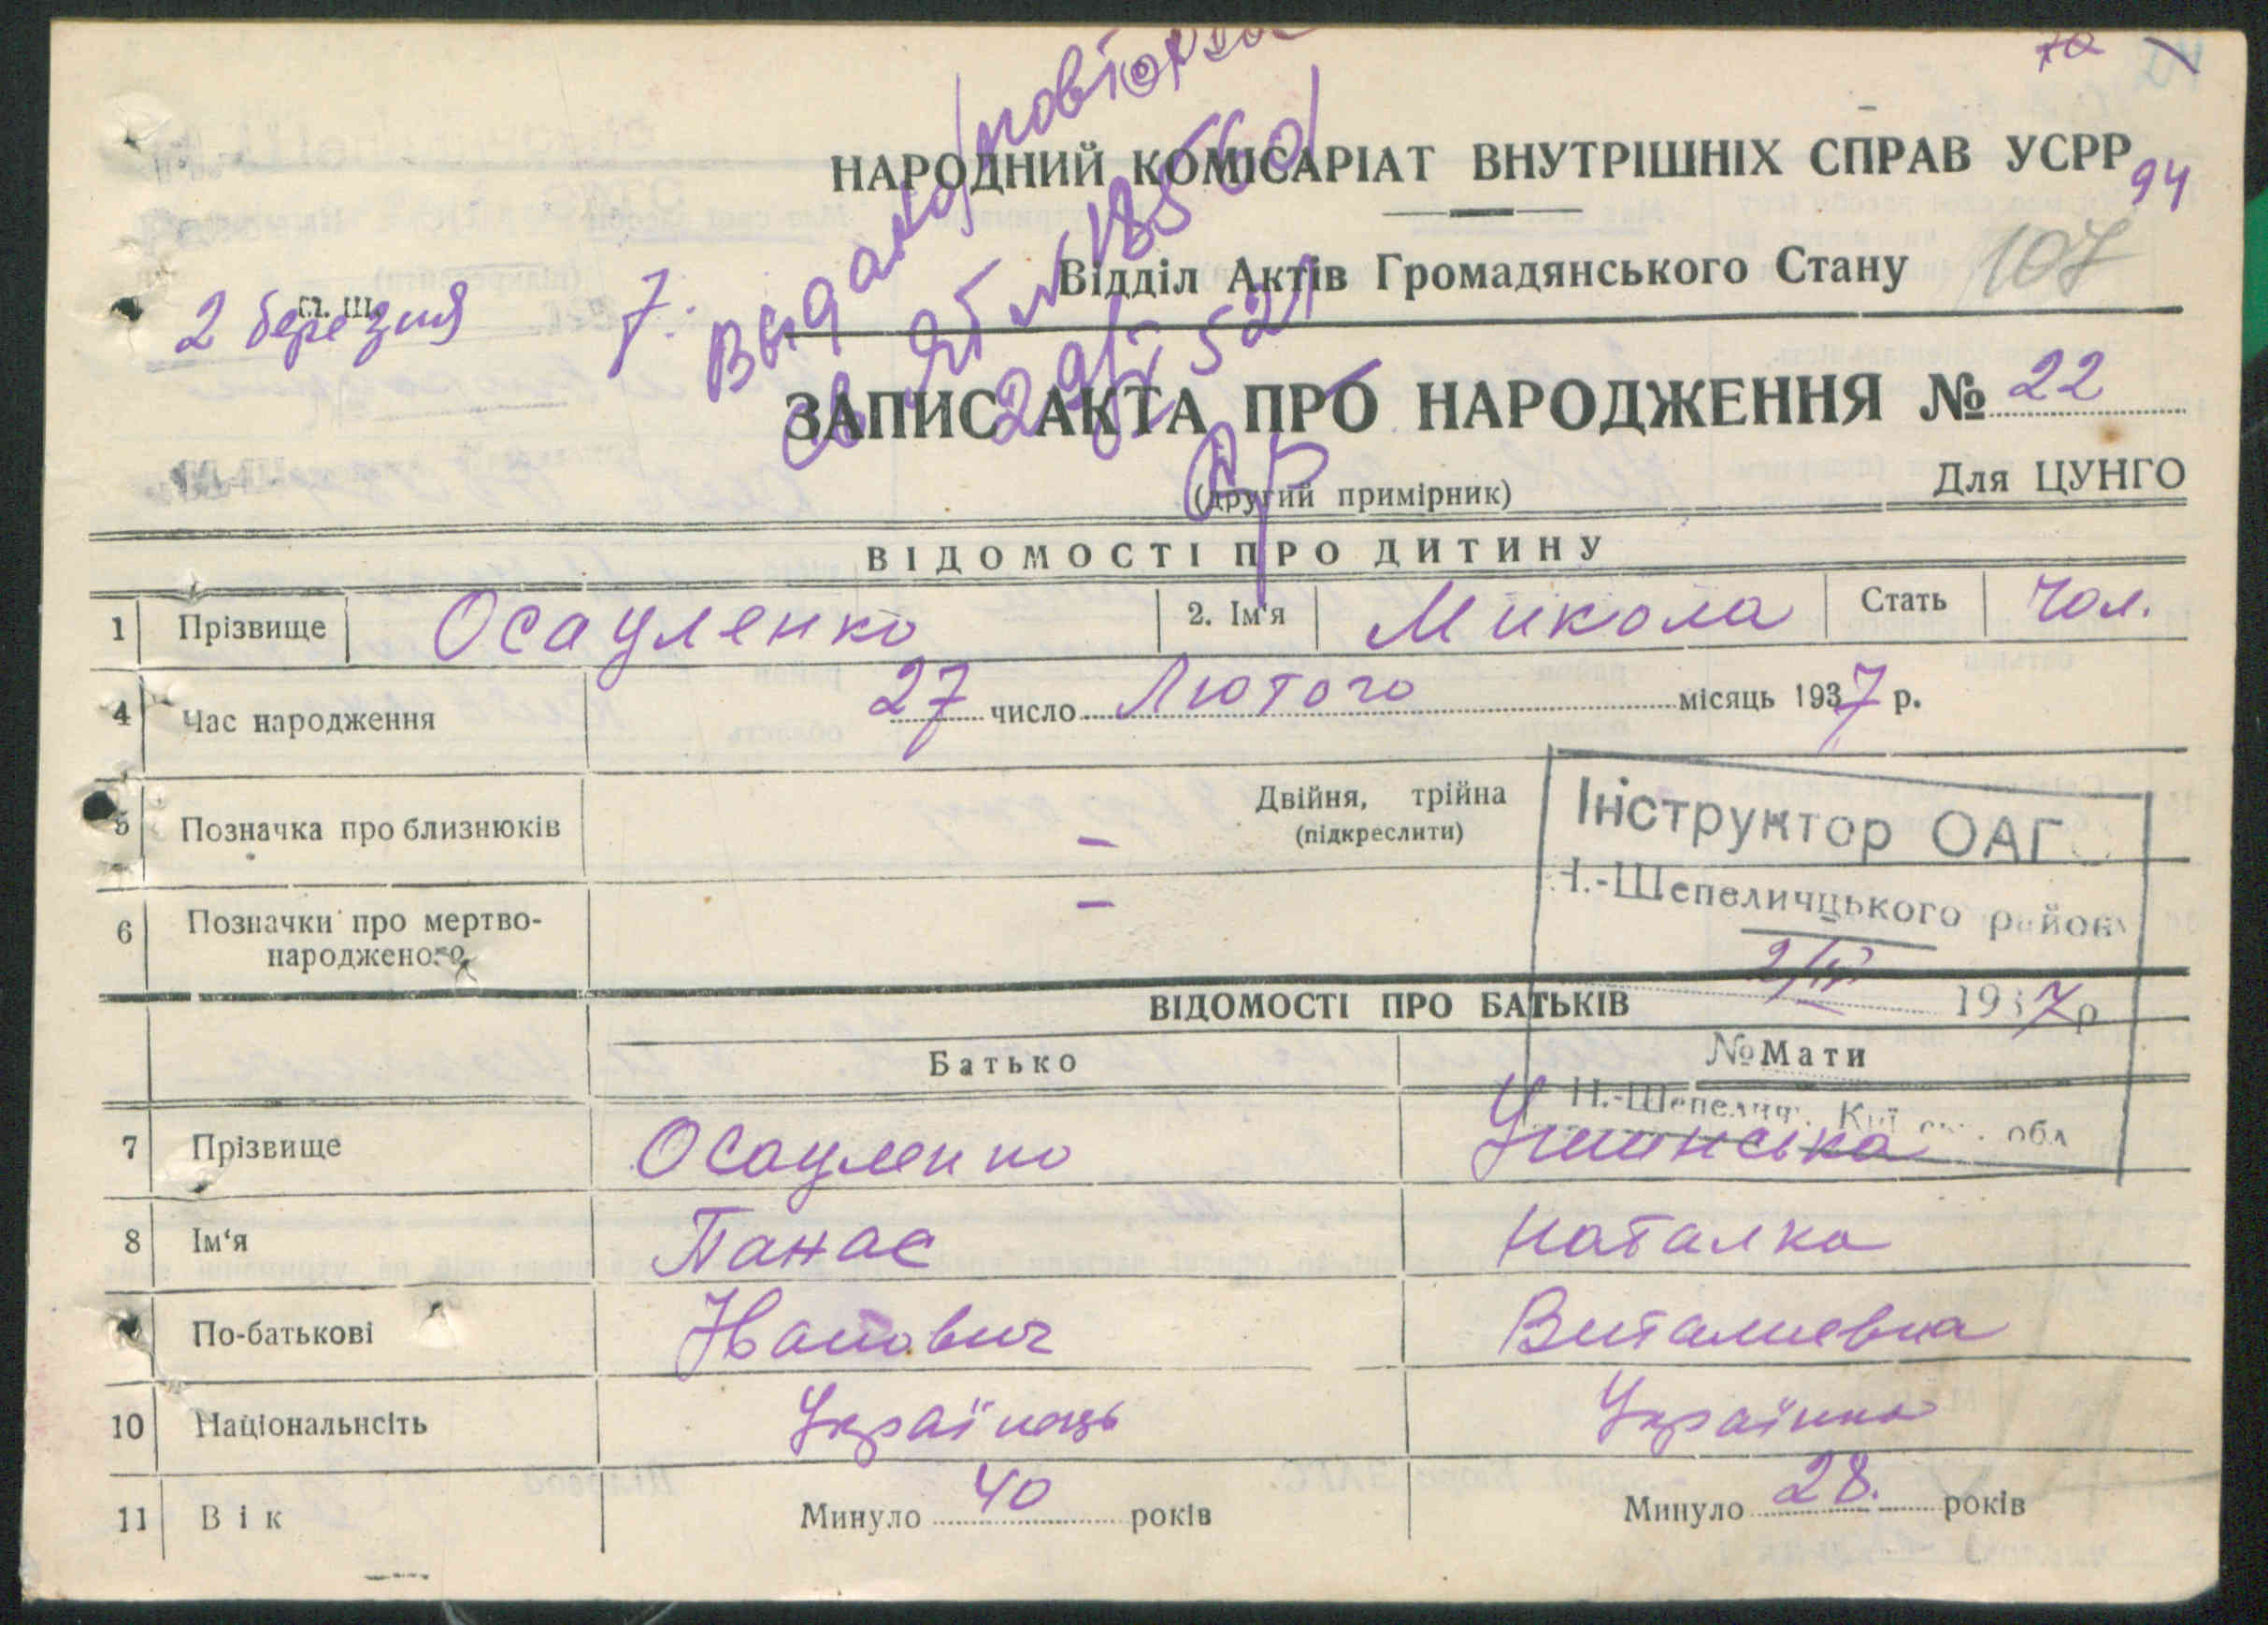 70
НАРОДНИЙ КОМІСАРІАТ ВНУТРІШНІХ СПРАВ УСРР
94
Відділ Актів Громадянського Стану 107
2 березня 7.
Выдано /повторное/
ЗАПИС АКТА ПРО НАРОДЖЕННЯ № 22
(другий примірник) Для ЦУНГО
ВІДОМОСТІ ПРО ДИТИНУ
1 Прізвище Осауленко 2. Ім'я Микола Стать Чол.
4 Час народження 27 число Лютого місяць 1937 р.
5 Позначка про близнюків – Двійня, трійна
(підкреслити)
6 Позначки про мертво-
народженого –
Інструктор ОАГС
Н.-Шепеличцького району
2/III 1937 р
№
Н.-Шепелич. Київськ. обл
ВІДОМОСТІ ПРО БАТЬКІВ
Батько Мати
7 Прізвище Осауленко Ушинська
8 Ім'я Панас Наталка
По-батькові Иванович Виталиевна
10 Національнсіть Українець Українка
11 Вік Минуло 40 років Минуло 28. років